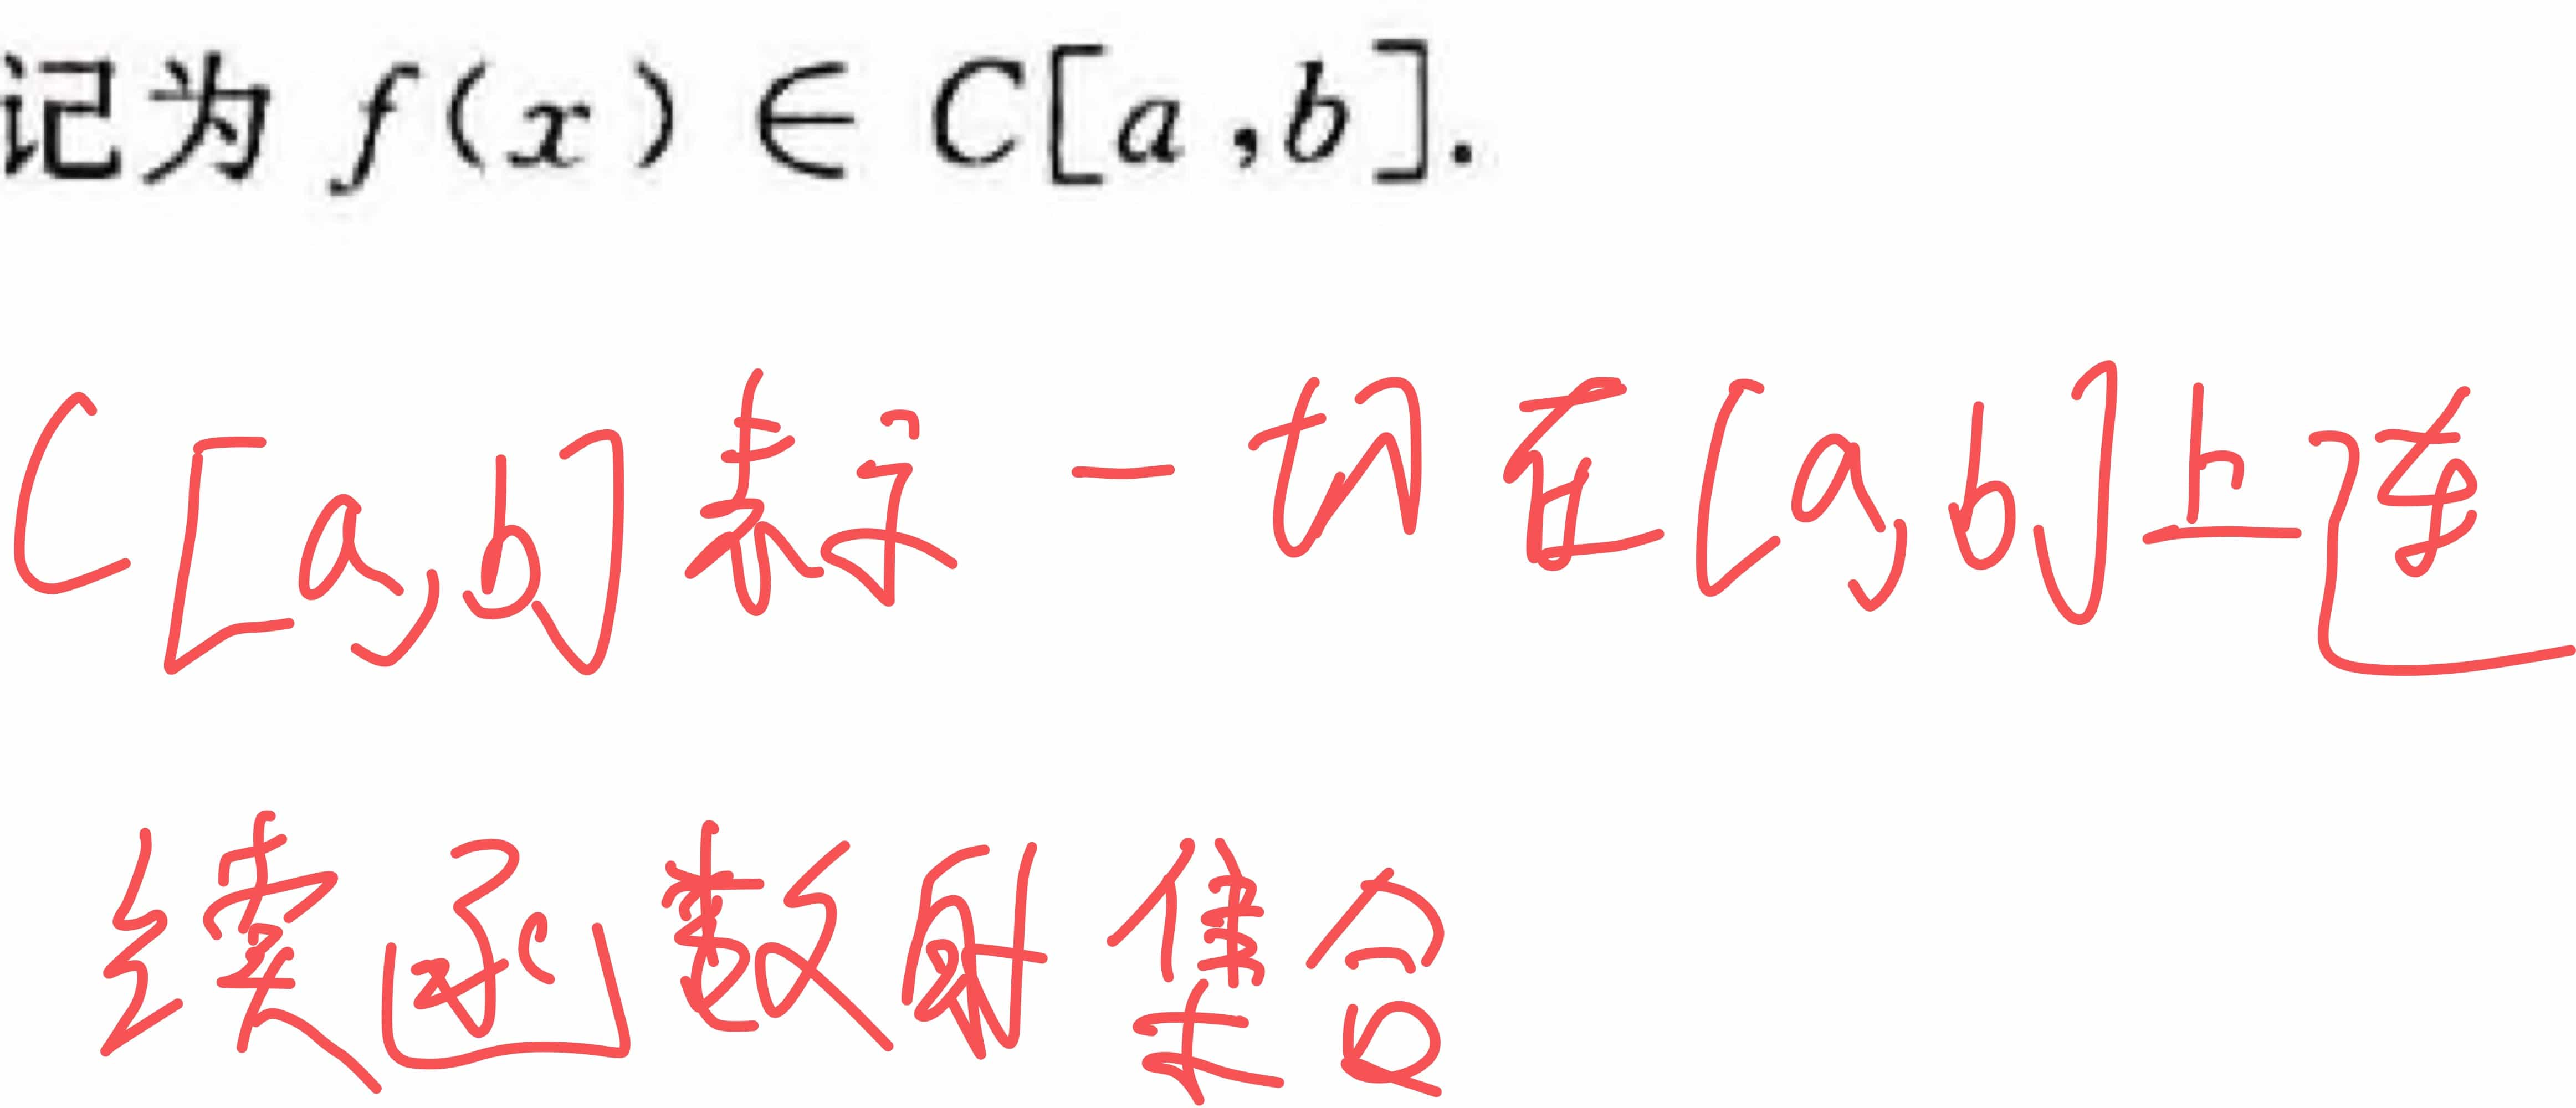 记为 f(x) ∈ C[a,b].
C[a,b]表示一切在[a,b]上连
续函数的集合